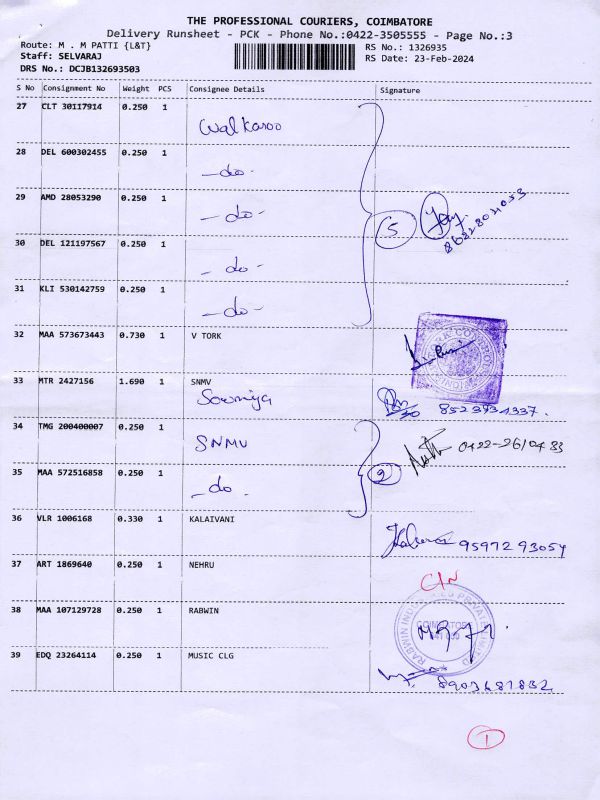 THE PROFESSIONAL COURIERS, COIMBATORE
Delivery Runsheet - PCK - Phone No.:0422-3505555 - Page No.:3
Route: M . M PATTI {L&T} RS No.: 1326935
Staff: SELVARAJ RS Date: 23-Feb-2024
DRS No.: DCJB132693503
S No Consignment No Weight PCS Consignee Details Signature
27 CLT 30117914 0.250 1
Walkaroo
28 DEL 600302455 0.250 1
-do-
29 AMD 28053290 0.250 1
-do-
5
30 DEL 121197567 0.250 1
-do-
31 KLI 530142759 0.250 1
-do-
32 MAA 573673443 0.730 1 V TORK
33 MTR 2427156 1.690 1 SNMV
Sowmiya
8523931337.
34 TMG 200400007 0.250 1
SNMV
35 MAA 572516858 0.250 1
-do-
2
36 VLR 1006168 0.330 1 KALAIVANI
9597293054
37 ART 1869640 0.250 1 NEHRU
C/N
38 MAA 107129728 0.250 1 RABWIN
39 EDQ 23264114 0.250 1 MUSIC CLG
8903681832
1